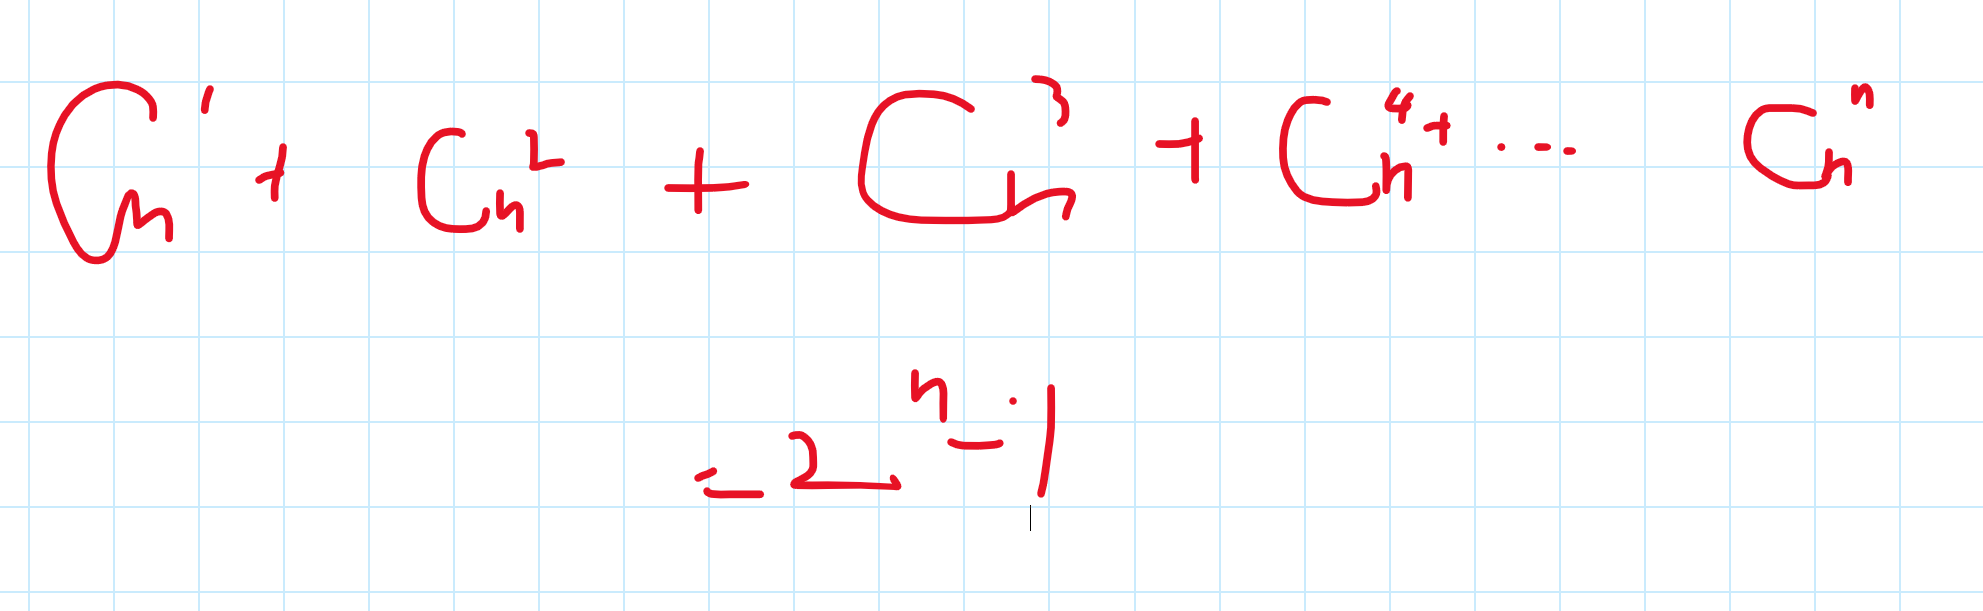 C_n^1 + C_n^2 + C_n^3 + C_n^4 + .... C_n^n
= 2^n - 1